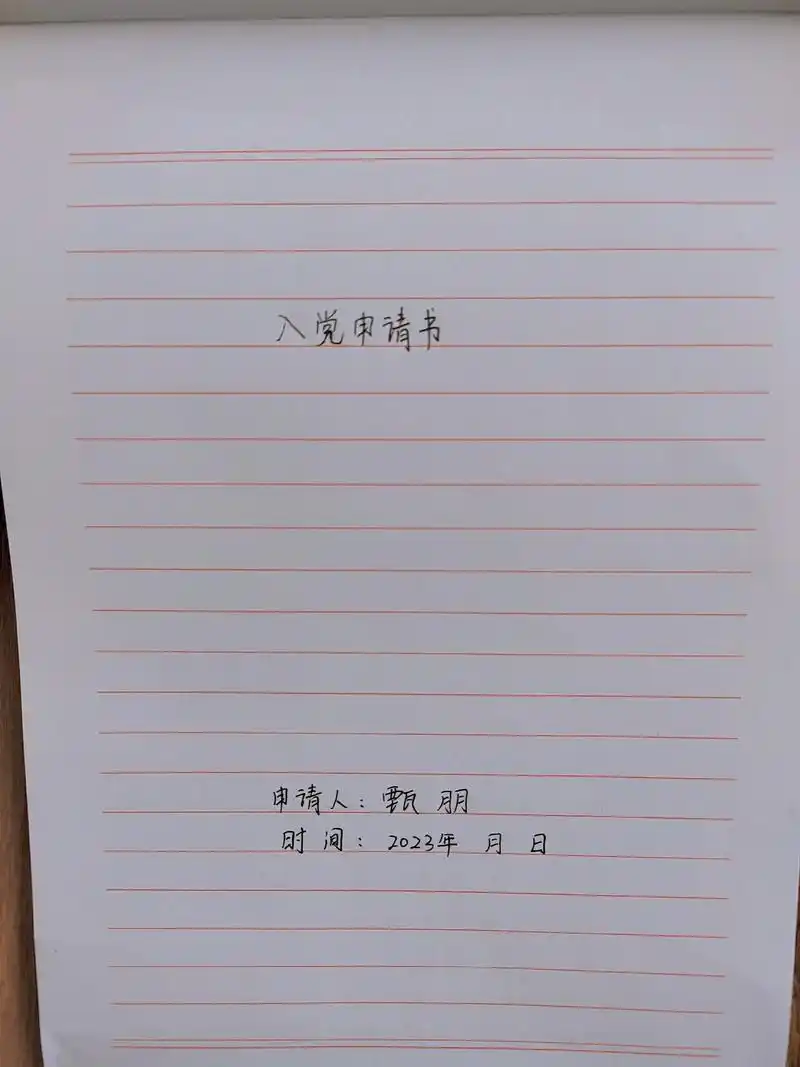 入党申请书
申请人：甄 朋
时 间：2023年 月 日